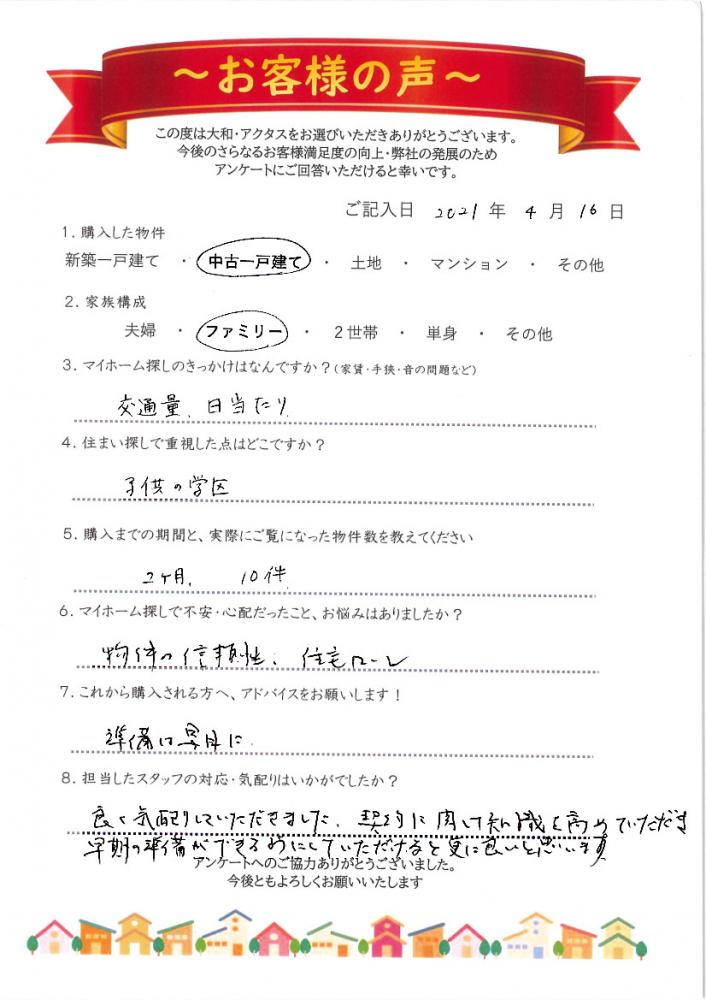 ～お客様の声～
この度は大和・アクタスをお選びいただきありがとうございます。
今後のさらなるお客様満足度の向上・弊社の発展のため
アンケートにご回答いただけると幸いです。
ご記入日 2021 年 4 月 16 日
1. 購入した物件
新築一戸建て ・ 中古一戸建て ・ 土地 ・ マンション ・ その他
2. 家族構成
夫婦 ・ ファミリー ・ 2世帯 ・ 単身 ・ その他
3. マイホーム探しのきっかけはなんですか？(家賃・手狭・音の問題など)
交通量、日当たり
4. 住まい探しで重視した点はどこですか？
子供の学区
5. 購入までの期間と、実際にご覧になった物件数を教えてください
2ヶ月、 10件
6. マイホーム探しで不安・心配だったこと、お悩みはありましたか？
物件の信頼性、住宅ローン
7. これから購入される方へ、アドバイスをお願いします！
準備は早目に
8. 担当したスタッフの対応・気配りはいかがでしたか？
良く気配りしていただきました、契約に関して知識を高めていただき
早期の準備ができるようにしていただけると更に良いと思います
アンケートへのご協力ありがとうございました。
今後ともよろしくお願いいたします